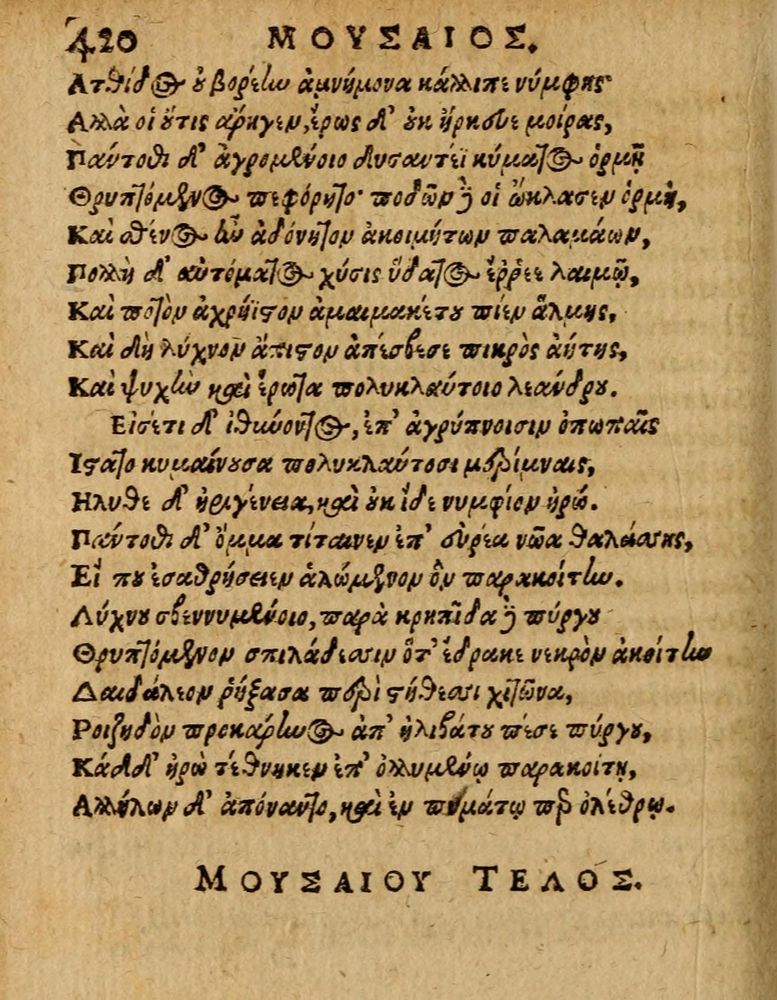 420 ΜΟΥΣΑΙΟΣ.
Ατθίδος οὐ βορέην ἀμνήμονα κάλλιπε νύμφης·
Αλλὰ οἱ οὔτις ἄρηγεν, ἔρως δ' οὐκ ἤρκεσε μοίρας,
Πάντοθι δ' ἀγρομένοιο δυσαντέϊ κύματος ὁρμῇ
Θρυπτόμενος πεφόρητο· ποδῶν δέ οἱ ὤκλασεν ὁρμὴ,
Καὶ σθένος ἦν ἀδόνητον ἀκοιμήτων παλαμάων,
Πολλὴ δ' αὐτόματος χύσις ὕδατος ἔρρεε λαιμῷ,
Καὶ ποτὸν ἀχρήϊστον ἀμαιμακέτου πίεν ἅλμης,
Καὶ δὴ λύχνον ἄπιστον ἀπέσβεσε πικρὸς ἀήτης,
Καὶ ψυχὴν καὶ ἔρωτα πολυκλαύτοιο λεάνδρου.
Εἰσέτι δ' ἰθύνοντος, ἐπ' ἀγρύπνοισιν ὀπωπαῖς
Ιστατο κυμαίνουσα πολυκλαύτοσι μερίμναις,
Ηλυθε δ' ἠριγένεια, καὶ οὐκ ἴδε νυμφίον ἡρώ.
Παντόθι δ' ὄμμα τίταινεν ἐπ' εὐρέα νῶα θαλάσσης,
Εἴ που ἐσαθρήσειεν ἀλώμενον ὃν παρακοίτην.
Λύχνου σβεννυμένοιο, παρὰ κρηπῖδα δὲ πύργου
Θρυπτόμενον σπιλάδεσσιν ὅτ' ἔδρακε νεκρὸν ἀκοίτην
Δαιδάλεον ῥήξασα περὶ στήθεσσι χιτῶνα,
Ροιζηδὸν προκάρηνος ἀπ' ἠλιβάτου πέσε πύργου,
Κάδδ' ἡρὼ τέθνηκεν ἐπ' ὀλλυμένῳ παρακοίτῃ,
Αλλήλων δ' ἀπόναντο, καὶ ἐν πυμάτῳ περ ὀλέθρῳ.
ΜΟΥΣΑΙΟΥ ΤΕΛΟΣ.